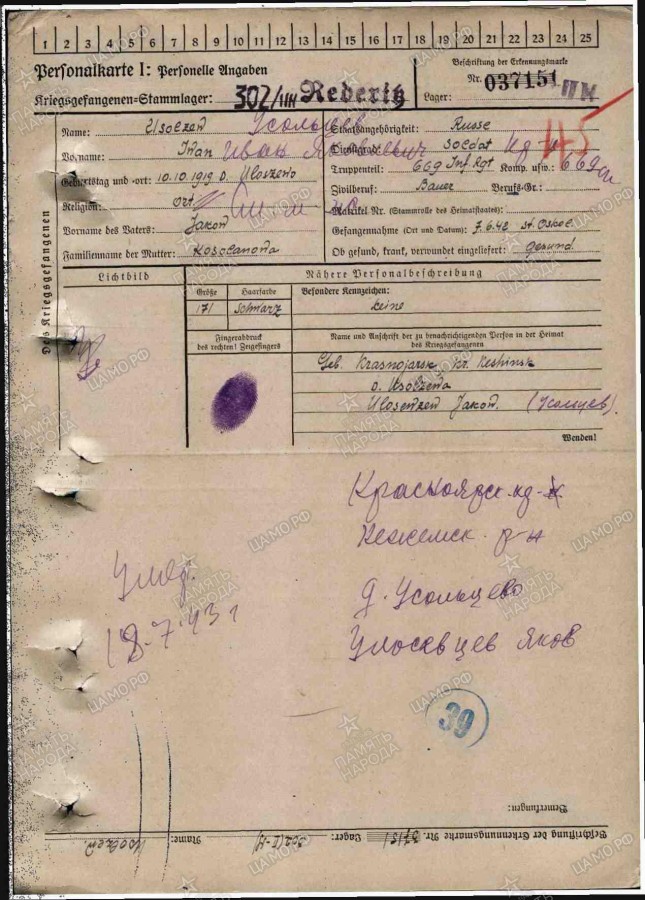 1 2 3 4 5 6 7 8 9 10 11 12 13 14 15 16 17 18 19 20 21 22 23 24 25
Personalkarte I: Personelle Angaben
Beschriftung der Erkennungsmarke
Nr. 037151
Kriegsgefangenen-Stammlager: 302/IIH Rederitz
Lager:
Des Kriegsgefangenen
Name: Usolzew Усольцев
Staatsangehörigkeit: Russe
Vorname: Iwan Иван Яковлевич
Dienstgrad: Soldat
Geburtstag und -ort: 10.10.1919 D.
Truppenteil: 669 Inf. Rgt Komp. usw.:
Religion: ort
Zivilberuf: Bauer Berufs-Gr.:
Vorname des Vaters: Jakow
Matrikel Nr. (Stammrolle des Heimatstaates):
Familienname der Mutter:
Gefangennahme (Ort und Datum): 7.6.42 St. Oskol.
Ob gesund, krank, verwundet eingeliefert: gesund
Lichtbild
Nähere Personalbeschreibung
Größe Haarfarbe Besondere Kennzeichen:
171 schwarz keine
Fingerabdruck des rechten! Zeigefingers
Name und Anschrift der zu benachrichtigenden Person in der Heimat des Kriegsgefangenen
Geb. Krasnojarsk Kr. Keshinsk
D. Usolzewa
Jakow (Усольцев).
Wenden!
Красноярск. кр-
Кежемск. р-н
Умер.
Д. Усольцево
18-7-43 г
Яков
39
Bemerkungen:
Beschriftung der Erkennungsmarke Nr. 37151 Lager: 302 Name:
ПАМЯТЬ НАРОДА
ЦАМО.РФ